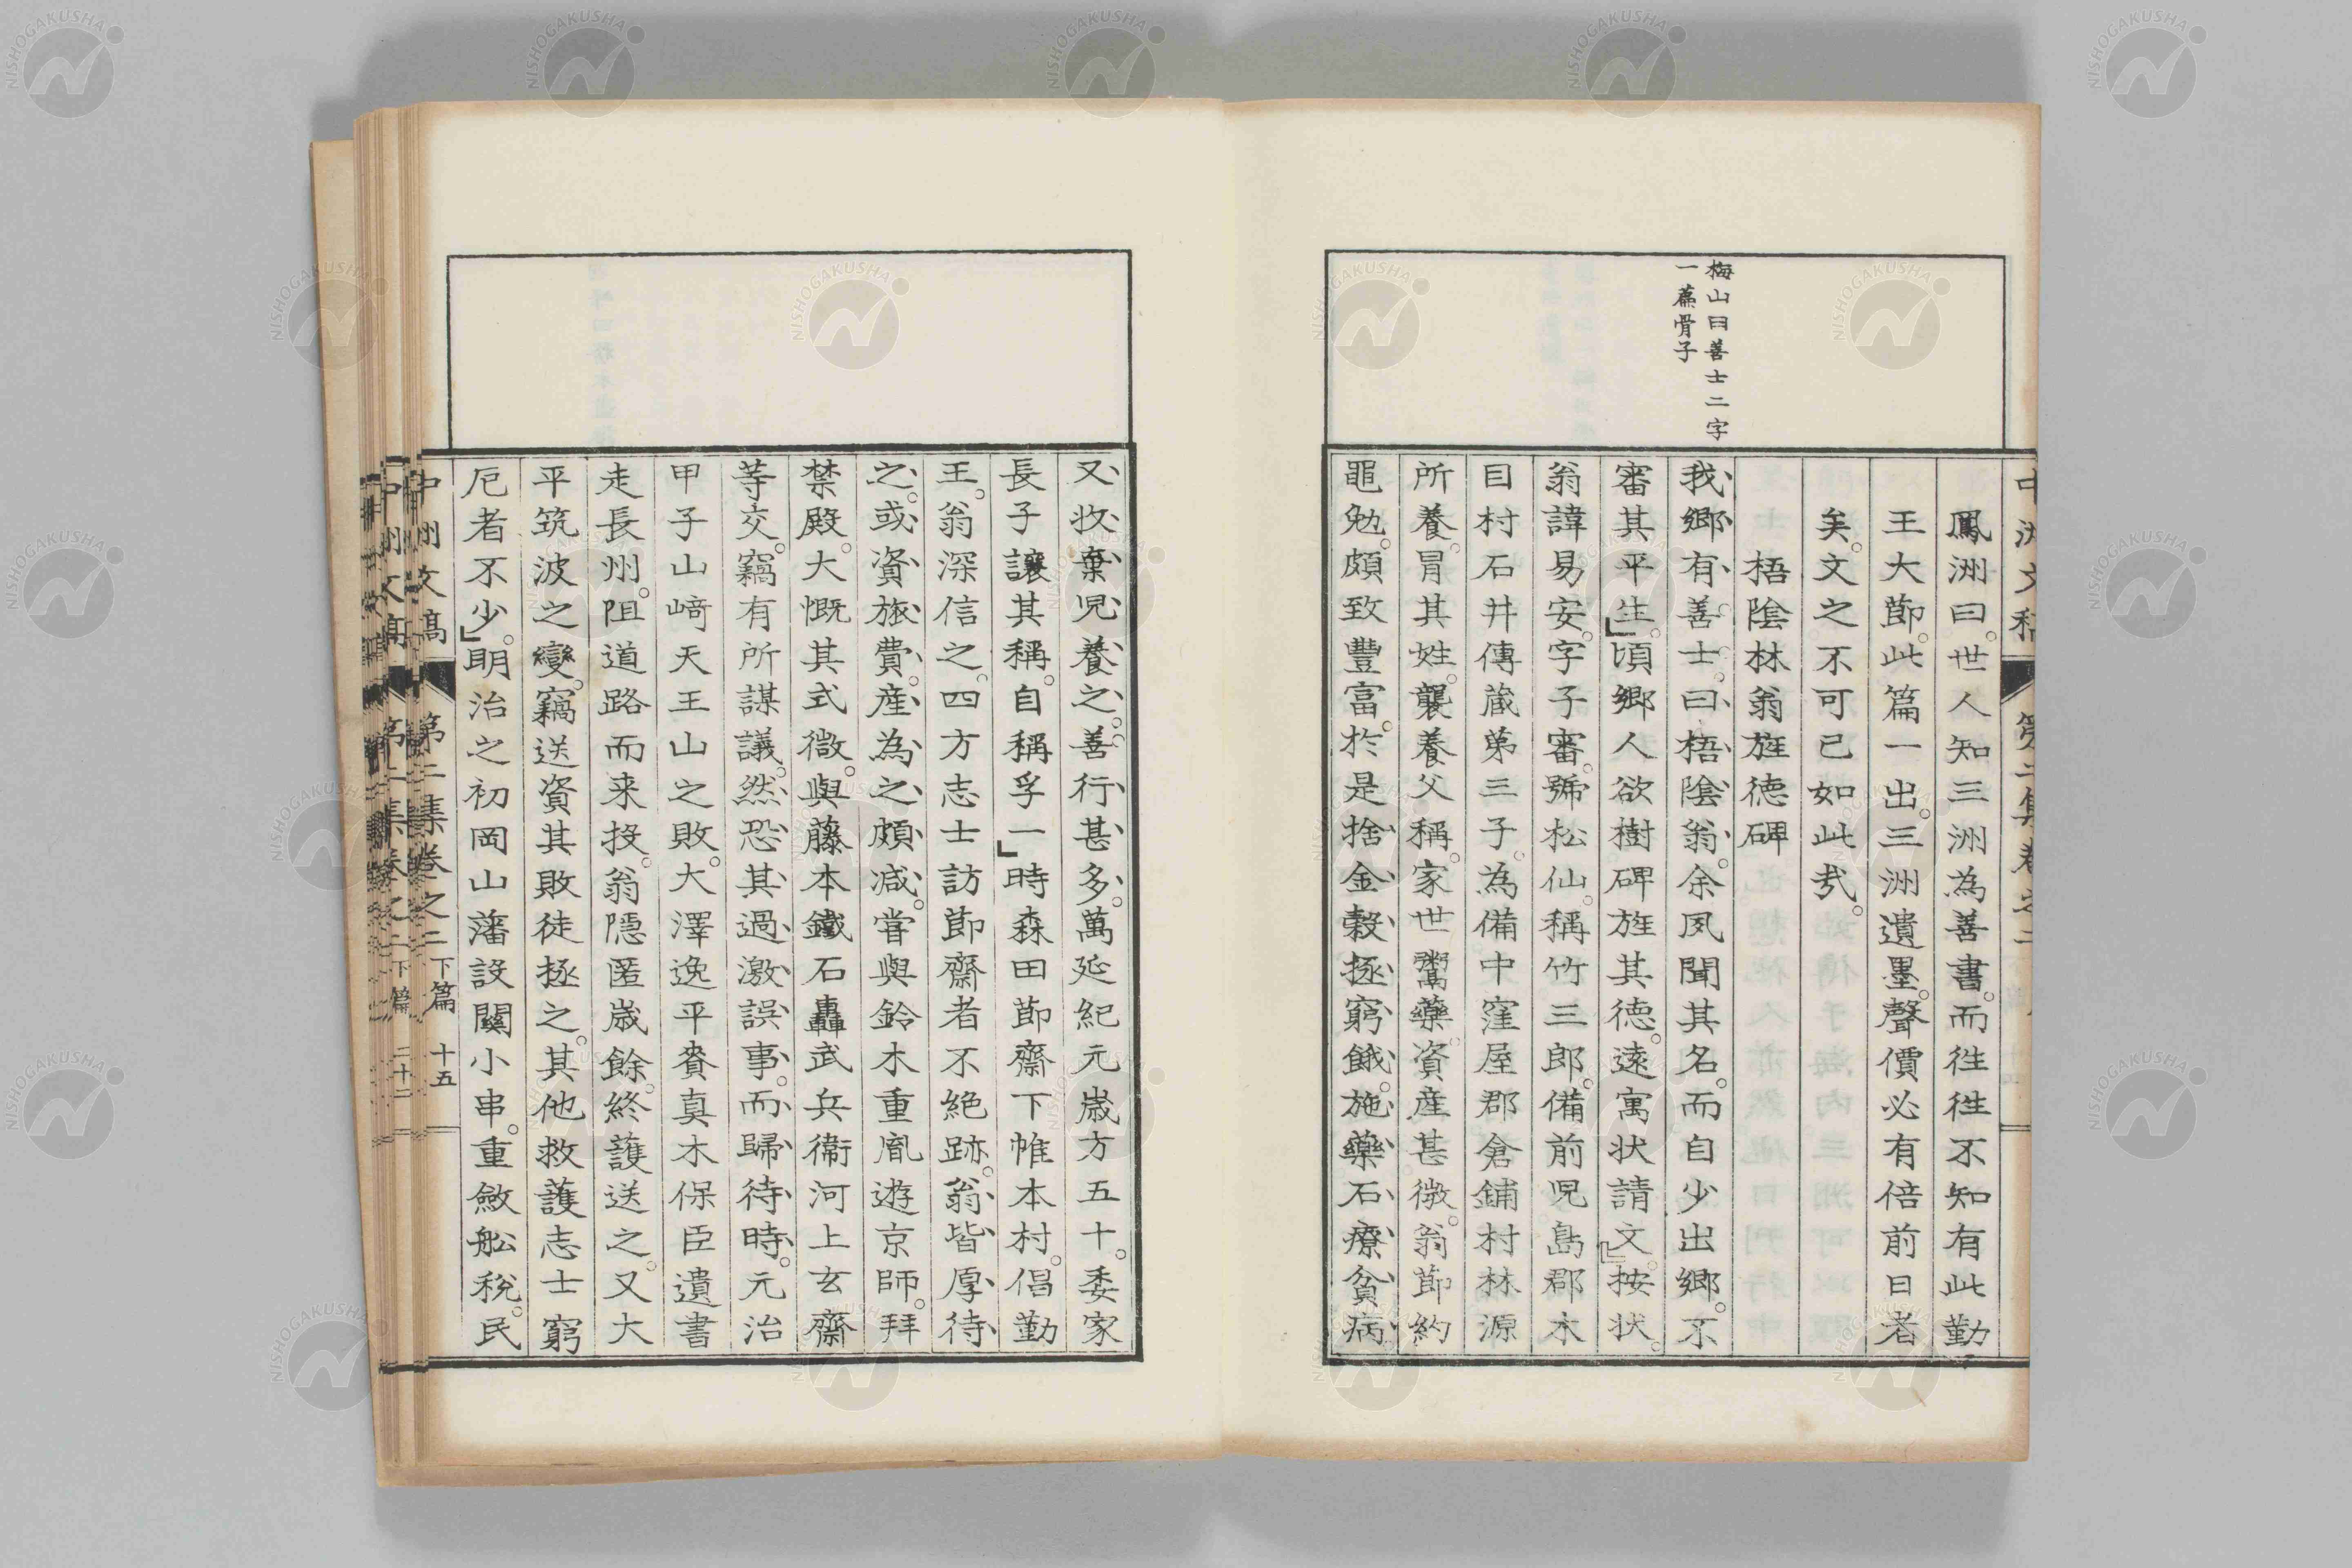 梅山曰善士二字
一篇骨子
鳳洲曰世人知三洲為善書而徃徃不知有此勤
王大節此篇一出三洲遺墨聲價必有倍前日者
矣文之不可已如此㢤
梧陰林翁旌德碑
我鄉有善士曰梧陰翁余夙聞其名而自少出鄉不
審其平生頃鄉人欲樹碑旌其德遠寓状請文按状
翁諱易安字子審號松仙稱竹三郎備前児島郡木
目村石井傳蔵第三子為備中窪屋郡倉鋪村林源
所養冒其姓襲養父稱家世鬻藥資産甚微翁節約
黽勉頗致豐富於是捨金穀拯窮餓施藥石療貧病
又收棄児養之善行甚多萬延紀元歳方五十委家
長子讓其稱自稱孚一時森田節齋下帷本村倡勤
王翁深信之四方志士訪節齋者不絶跡翁皆厚待
之或資旅費産為之頗減嘗與鈴木重胤遊京師拜
禁殿大慨其式微與藤本鐵石轟武兵衞河上玄齋
等交竊有所謀議然恐其過激誤事而歸待時元治
甲子山﨑天王山之敗大澤逸平賚真木保臣遺書
走長州阻道路而来投翁隠匿歳餘終護送之又大
平筑波之變竊送資其敗徒拯之其他救護志士窮
厄者不少明治之初岡山藩設關小串重斂舩税民
中洲文稿 第二集卷之二 下篇 十五